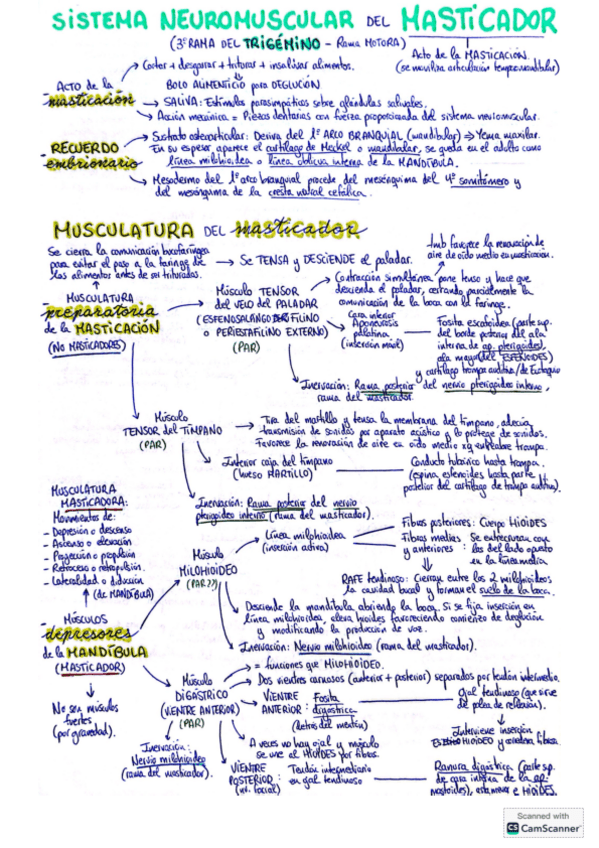 SISTEMA NEUROMUSCULAR DEL MASTICADOR
(3ª RAMA DEL TRIGÉMINO - Rama MOTORA)
Acto de la MASTICACIÓN.
(se moviliza articulación temporomandibular)
ACTO de la
masticación
Cortar + desgarrar + triturar + insalivar alimentos.
BOLO ALIMENTICIO para DEGLUCIÓN
SALIVA: Estímulos parasimpáticos sobre glándulas salivales.
Acción mecánica = Piezas dentarias con fuerza proporcionada del sistema neuromuscular.
RECUERDO
embrionario
Sustrato osteoarticular: Deriva del 1º ARCO BRANQUIAL (mandibular) ⇒ Yema maxilar.
En su espesor aparece el cartílago de Meckel o mandibular, se queda en el adulto como
línea milohioidea o línea oblicua interna de la MANDÍBULA.
Mesodermo del 1º arco branquial procede del mesénquima del 4º somitómero y
del mesénquima de la cresta neural cefálica.
MUSCULATURA DEL masticador
Se cierra la comunicación bucofaríngea
para evitar el paso a la faringe de
los alimentos antes de ser triturados.
Se TENSA y DESCIENDE el paladar.
tmb favorece la renovación de
aire de oído medio en masticación.
MUSCULATURA
preparatoria
de la MASTICACIÓN
(NO MASTICADORES)
Músculo TENSOR
del VELO del PALADAR
O PERIESTAFILINO EXTERNO)
(PAR)
Contracción simultánea pone tenso y hace que
descienda el paladar, cerrando parcialmente la
comunicación de la boca con la faringe.
Cara inferior
Aponeurosis
palatina
Fosita escafoidea (parte sup.
del borde posterior del ala
interna de ap. pterigoides),
ala mayor (del ESFENOIDES)
y cartílago trompa auditiva/de Eustaquio
Inervación: Rama posterior del nervio pterigoideo interno,
rama del masticador.
Músculo
TENSOR del TÍMPANO
(PAR)
Tira del martillo y tensa la membrana del tímpano, adecúa
transmisión de sonidos por aparato acústico y lo protege de sonidos.
Favorece la renovación de aire en oído medio xq entreabre trompa.
Interior caja del tímpano
(hueso MARTILLO)
Conducto tubárico hasta trompa.
(espina esfenoides hasta parte
posterior del cartílago de trompa auditiva).
Inervación: Rama posterior del nervio
pterigoideo interno (rama del masticador).
MUSCULATURA
MASTICADORA:
Movimientos de:
- Depresión o descenso
- Ascenso o elevación
- Proyección o propulsión
- Retroceso o retropulsión
- Lateralidad o diducción
(de MANDÍBULA)
Músculo
MILOHIOIDEO
(PAR??)
Línea milohioidea
(inserción activa)
Fibras posteriores: Cuerpo HIOIDES
Fibras medias Se entrecruzan con
y anteriores : las del lado opuesto
en la línea media
RAFE tendinoso: Cierran entre los 2 milohioideos
la cavidad bucal y forman el suelo de la boca.
Desciende la mandíbula abriendo la boca. Si se fija inserción en
línea milohioidea, eleva hioides favoreciendo comienzo de deglución
y modificando la producción de voz.
Inervación: Nervio milohioideo (rama del masticador).
MÚSCULOS
depresores
de la MANDÍBULA
(MASTICADOR)
No son músculos
fuertes
(por gravedad).
Músculo
DIGÁSTRICO
(VIENTRE ANTERIOR)
(PAR)
= funciones que MILOHIOIDEO.
Dos vientres carnosos (anterior + posterior) separados por tendón intermedio.
VIENTRE
ANTERIOR :
Fosita
digástrica
(detrás del mentón)
Ojal tendinoso (que sirve
de polea de reflexión).
Interviene inserción
HIOIDEO
A veces no hay ojal y músculo
se une al HIOIDES por fibras.
Inervación:
Nervio milohioideo
(rama del masticador).
VIENTRE
POSTERIOR :
(nv. facial)
Tendón intermediario
en ojal tendinoso
Ranura digástrica (parte sp.
de cara interna de la ap.
mastoides), asta menor e HIOIDES.
Scanned with
CS CamScanner